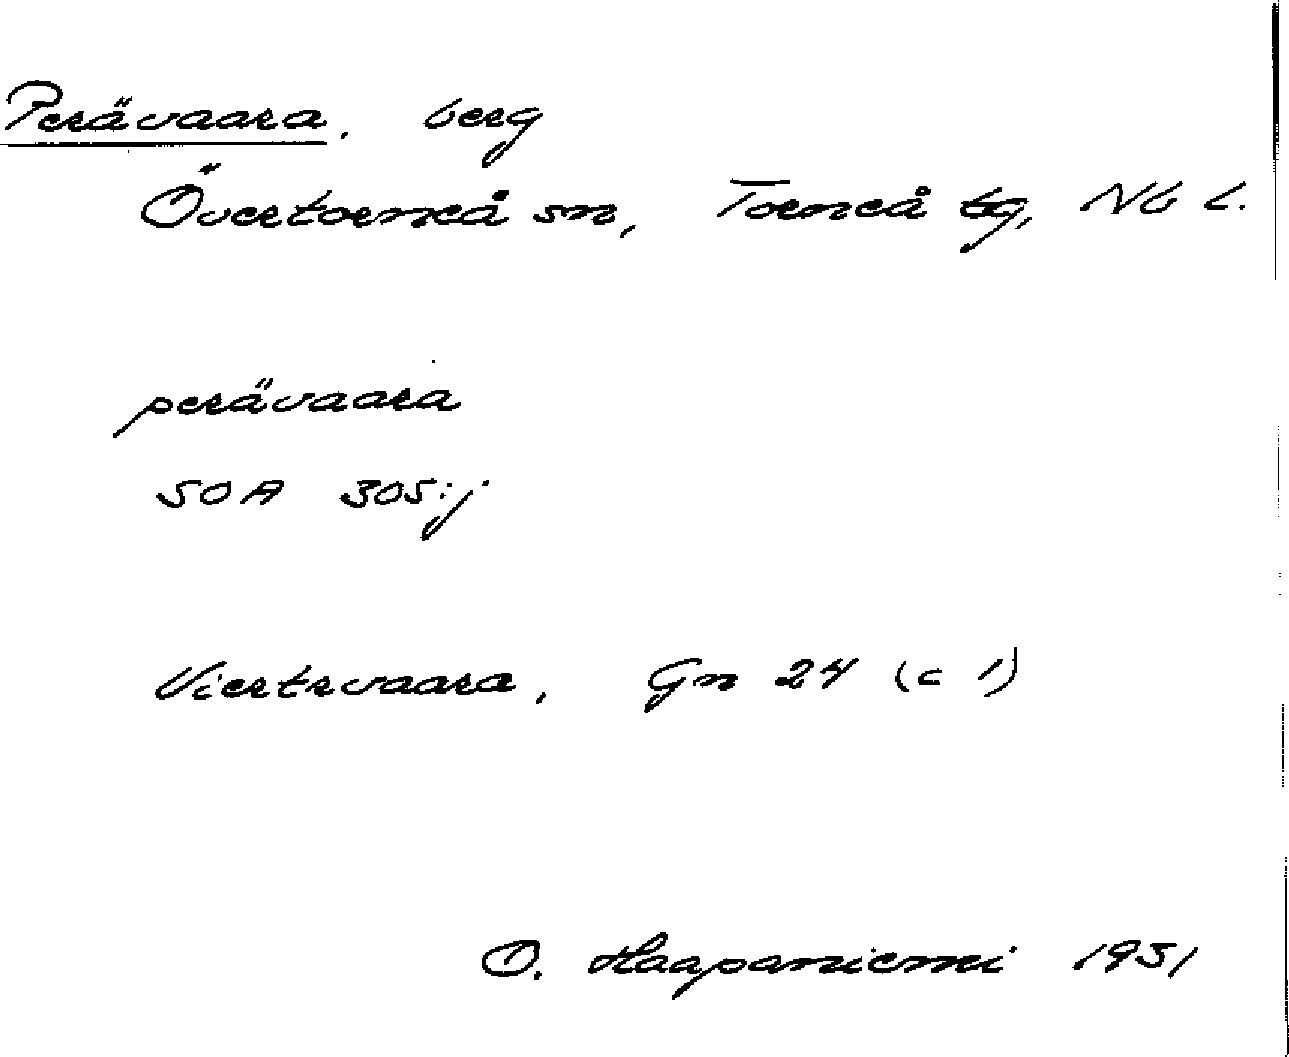 Perävaara, berg
Övertorneå sn, Torneå tg, Nb L.
perävaara
SOA 305:j
Viertrvaara, Gn 24 (c 1)
O. Haapaniemi 1951